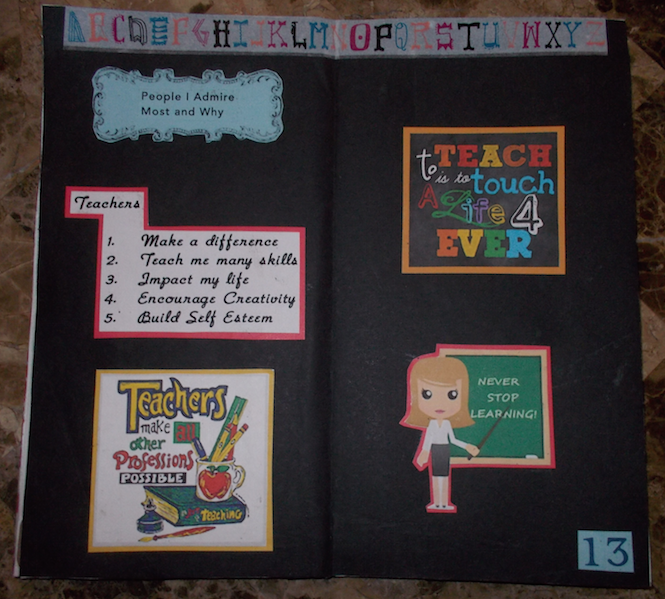 ABCDEFGHIJKLMNOPQRSTUVWXYZ
People I Admire
Most and Why
Teachers
1. Make a difference
2. Teach me many skills
3. Impact my life
4. Encourage Creativity
5. Build Self Esteem
Teachers
make all
other
Professions
POSSIBLE
Teaching
to TEACH
is to touch
A Life 4
EVER
NEVER
STOP
LEARNING!
13